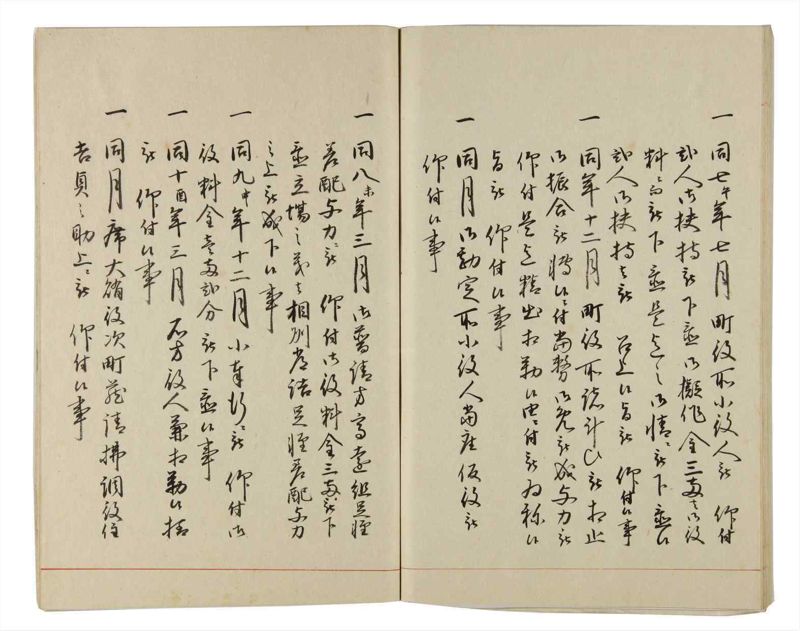 一同七午年七月町役所小役人被 仰付
弐人御扶持被下置御擬作金三両之御役
料ニ而被下置是迄之御情ニ被下置候
弐人御扶持者被 召上候旨被 仰付候事
一同年十二月町役所諸計ひ被相止
御振合被 ニ付当勢御免被成与力被
仰付是迄精出相勤候ニ付被為 候
旨被 仰付候事
一同月御勘定所小役人当座仮役被
仰付候事
一同八未年三月御普請方 組足軽
差配与力被 仰付御役料金三両被下
置立場之義者相別 諸足軽差配与力
之上被成下候事
一同九申年十二月小奉行被 仰付御
役料金壱両弐分被下置候事
一同十酉年三月 方役人兼相勤候様
被 仰付候事
一同月席大 役次町 請払調役
吉員之助上ニ被 仰付候事